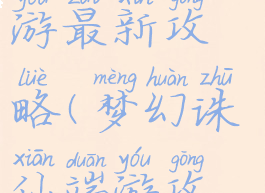 yóu zuì xīn gōng
游最新攻
lüè mèng huàn zhū
略(梦幻诛
xiān duān yóu gōng
仙端游攻